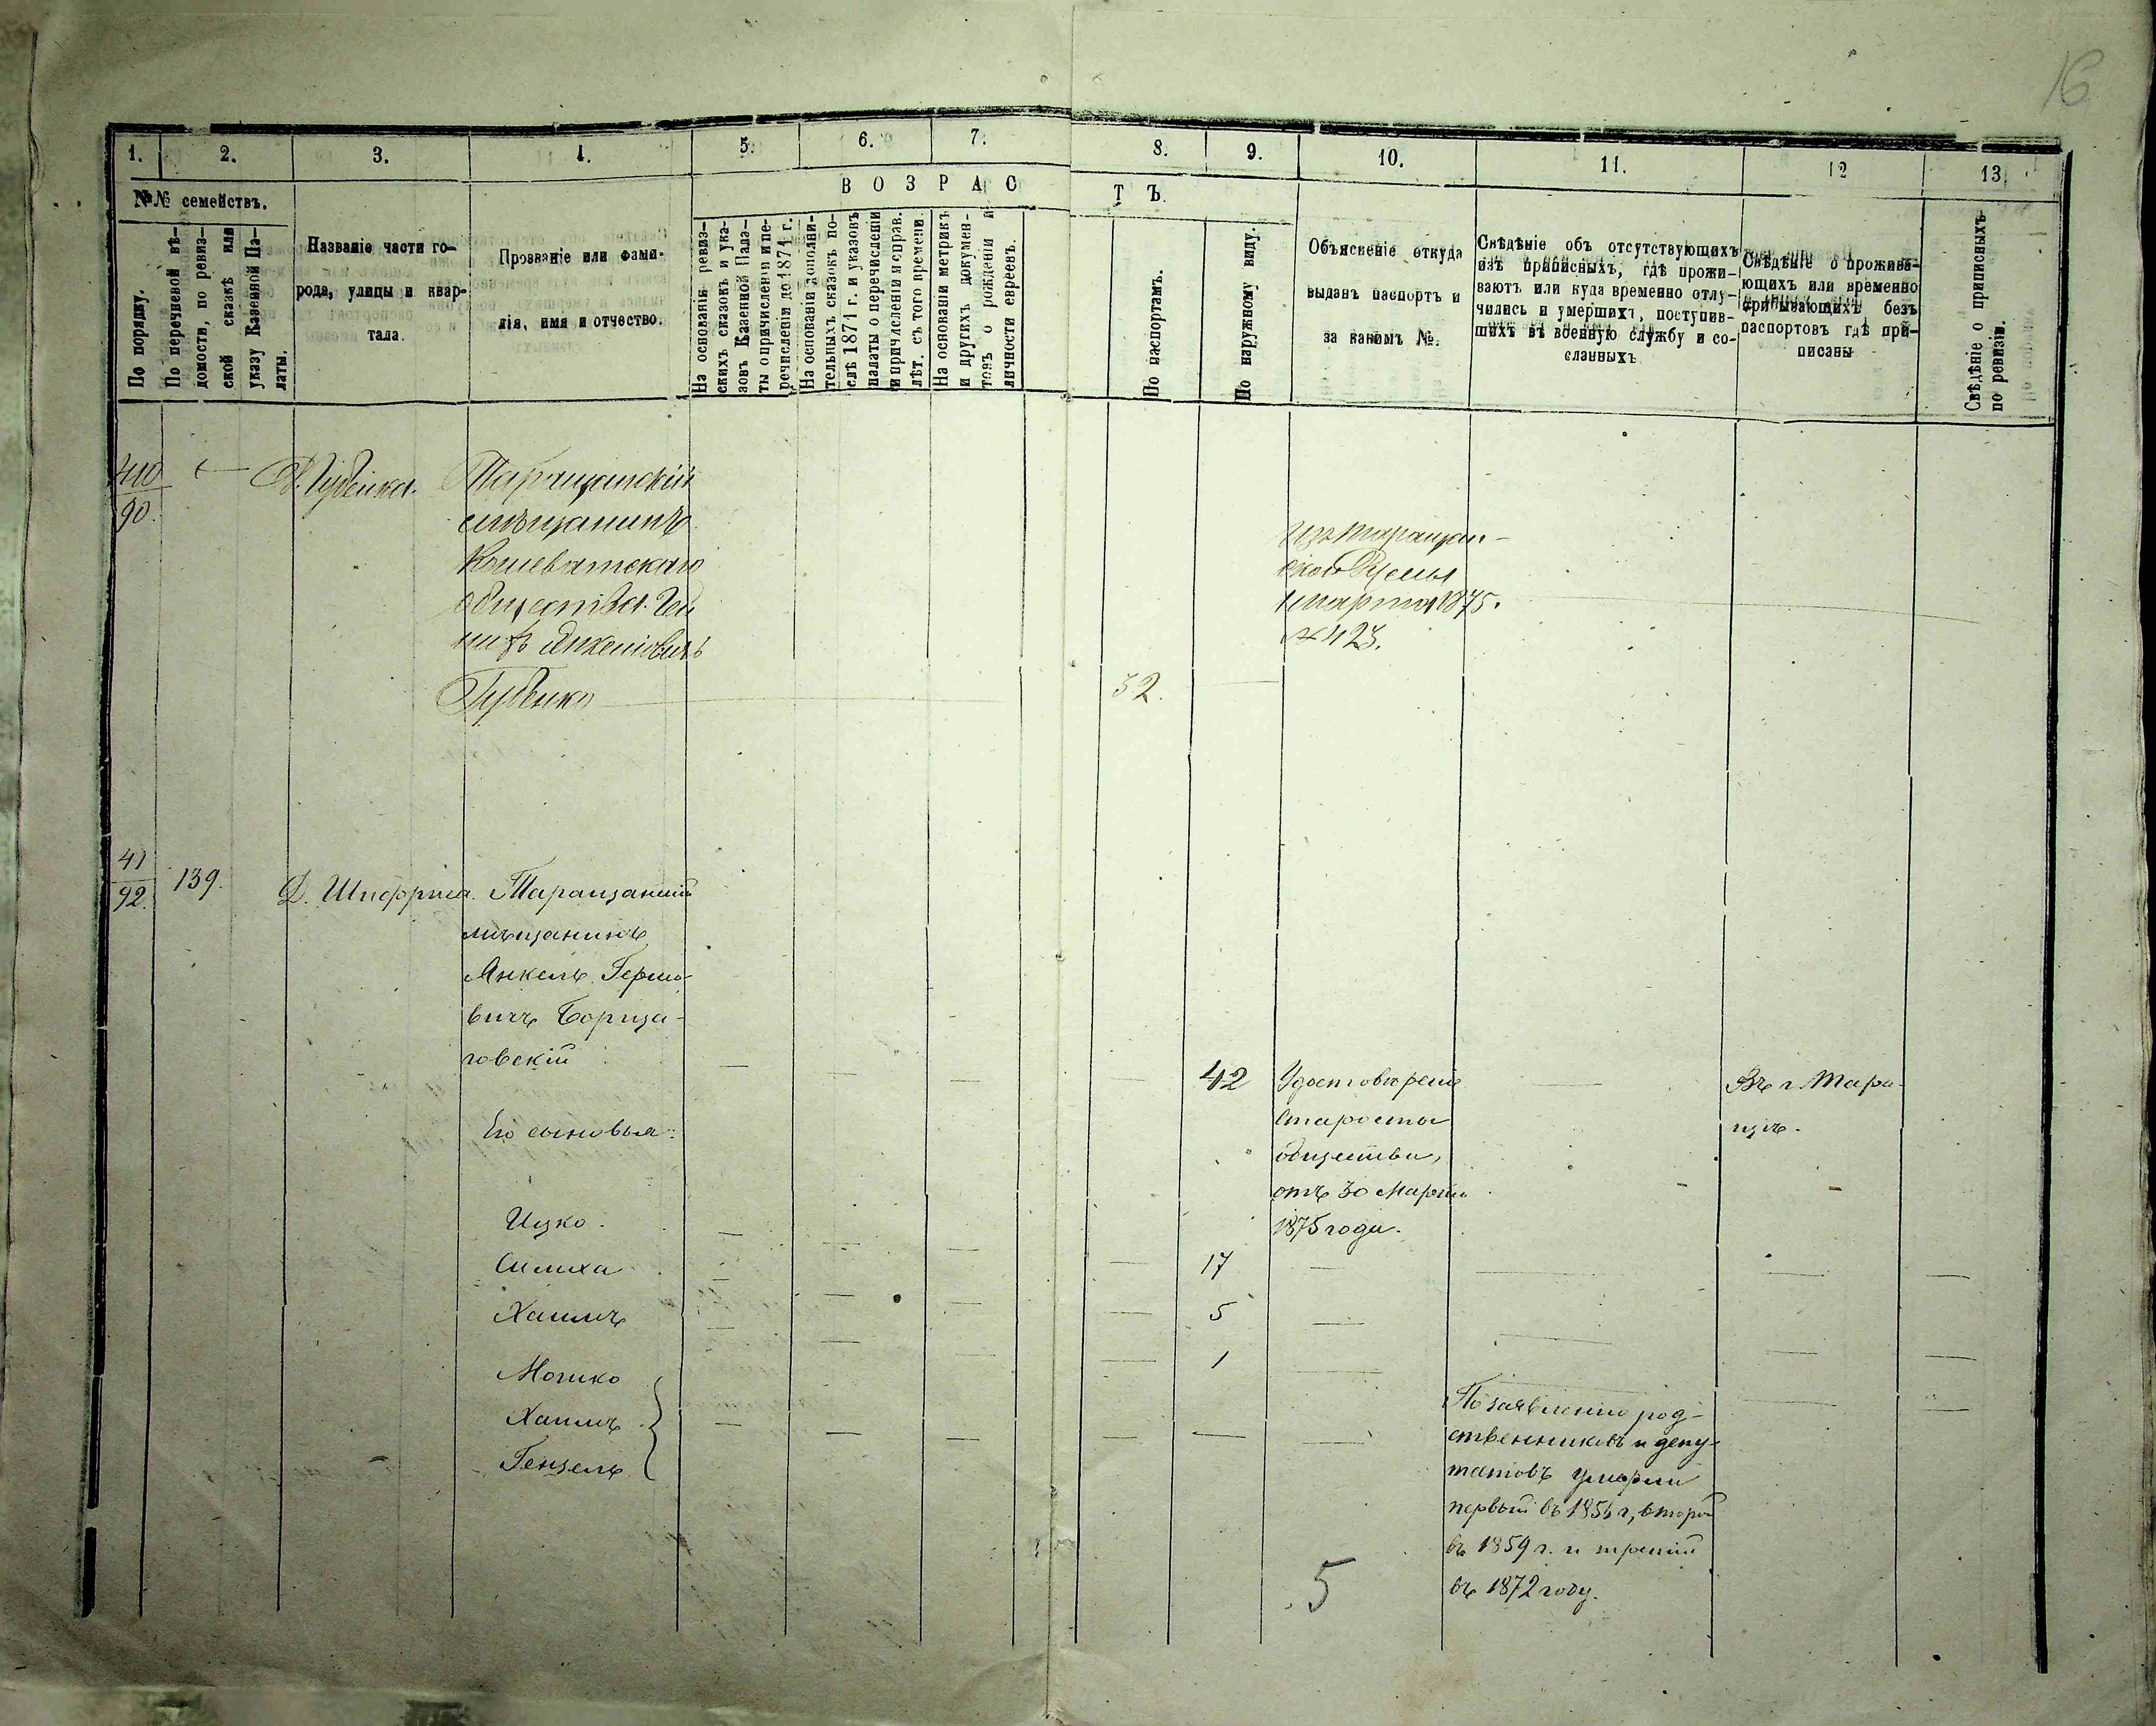 16
1.
2.
3.
4.
5.
6.
7.
8.
9.
10.
11.
12
13.
№№ семействъ.
ВОЗРАСТЪ.
По порядку.
По перечневой вѣ-
домости, по ревиз-
ской сказкѣ или
указу Казенной Па-
латы.
Названіе части го-
рода, улицы и квар-
тала.
Прозваніе или фами-
лія, имя и отчество.
На основаніи ревиз-
скихъ сказокъ и ука-
зовъ Казенной Пала-
ты о причисленіи и пе-
речисленіи до 1871 г.
На основаніи дополни-
тельныхъ сказокъ по-
слѣ 1871 г. и указовъ
палаты о перечисленіи
и причисленіи и справ.
лѣт. съ того времени.
На основаніи метрикъ
и другихъ докумен-
товъ о рожденіи и
личности евреевъ.
По паспортамъ.
По наружному виду.
Объясненіе откуда
выданъ паспортъ и
за какимъ №.
Свѣдѣніе объ отсутствующихъ
изъ приписныхъ, гдѣ прожи-
ваютъ или куда временно отлу-
чились и умершихъ, поступив-
шихъ въ военную службу и со-
сланныхъ
Свѣдѣніе о прожива-
ющихъ или временно
пребывающихъ безъ
паспортовъ гдѣ при-
писаны
Свѣдѣніе о приписныхъ
по ревизіи.
40
90.
Д. Губенка.
Таращанскій
мѣщанинъ
Кошеватскаго
общества
Янкелiовичъ
Губенко
32.
Изъ Таращан-
ской Думы
марта 1875.
№ 423.
41
92.
139.
Д. Шифриса.
Таращанскій
мѣщанинъ
Янкель Гершко-
вичъ Борща-
говскій
42
Удостовѣреніе
Старосты
общества,
отъ 30 Марта
1875 года.
Въ г. Тара-
щѣ.
Его сыновья:
Ицко.
17
Симха
5
Хаимъ
1
Мошко
Хаимъ
Гензель
По заявленію род-
ственниковъ и депу-
татовъ умерли
первый въ 1856 г, второй
въ 1859 г. и третій
въ 1872 году.
5